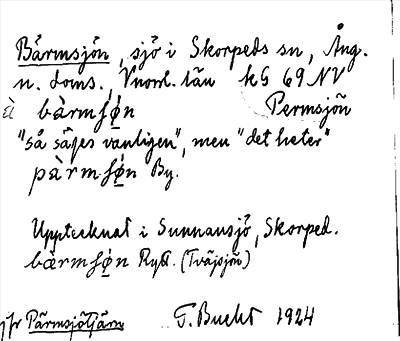 Bärmsjön, sjö i Skorpeds sn, Ång.
n. doms., Vnorrl. län kG 69 NV
à bàrmʃø̀n Permsjön
"så säjes vanligen", men "det heter"
pàrmʃø̀n By.
Upptecknat i Sunnansjö, Skorped.
bærmʃø̀n Ryst. (Tväjsjön)
jfr Pärmsjötjärn T. Bucht 1924